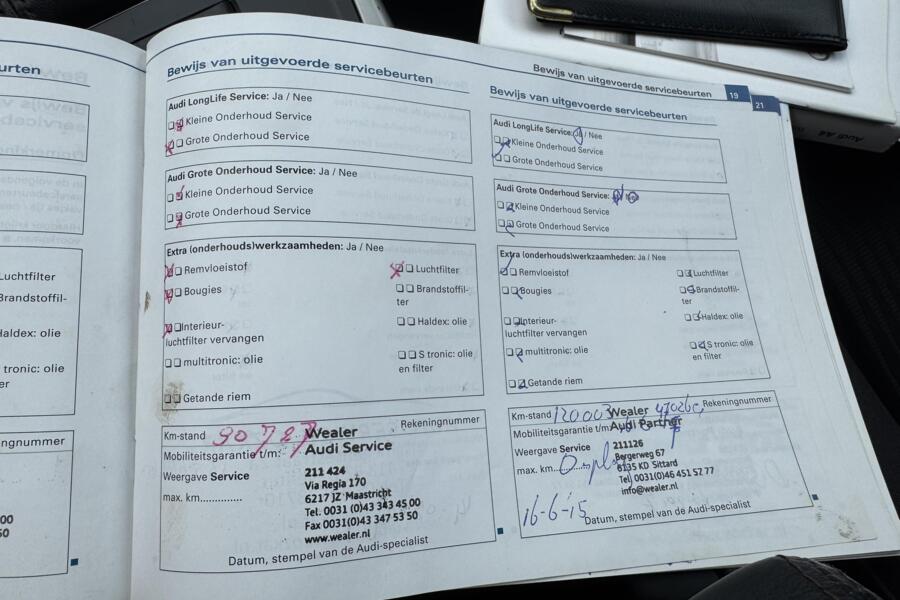 urten
Luchtfilter
Brandstoffil-
Haldex: olie
tronic: olie
er
ngnummer
00
50
Bewijs van uitgevoerde servicebeurten
Audi LongLife Service: Ja / Nee
Kleine Onderhoud Service
Grote Onderhoud Service
Audi Grote Onderhoud Service: Ja / Nee
Kleine Onderhoud Service
Grote Onderhoud Service
Extra (onderhouds)werkzaamheden: Ja / Nee
Remvloeistof
Luchtfilter
Bougies
Brandstoffil-
ter
Interieur-
luchtfilter vervangen
Haldex: olie
multitronic: olie
S tronic: olie
en filter
Getande riem
Km-stand 90727 Rekeningnummer
Wealer
Mobiliteitsgarantie t/m: Audi Service
Weergave Service
211 424
Via Regia 170
max. km..............
6217 JZ Maastricht
Tel. 0031 (0)43 343 45 00
Fax 0031(0)43 347 53 50
www.wealer.nl
Datum, stempel van de Audi-specialist
Bewijs van uitgevoerde servicebeurten 19
21
Bewijs van uitgevoerde servicebeurten
Audi LongLife Service: Ja / Nee
Kleine Onderhoud Service
Grote Onderhoud Service
Audi Grote Onderhoud Service:
Kleine Onderhoud Service
Grote Onderhoud Service
Extra (onderhouds)werkzaamheden: Ja / Nee
Remvloeistof
Luchtfilter
Bougies
Brandstoffil-
ter
Interieur-
luchtfilter vervangen
Haldex: olie
multitronic: olie
S tronic: olie
en filter
Getande riem
Km-stand 120003 Wealer Rekeningnummer
Mobiliteitsgarantie t/m: Audi Partner
Weergave Service
211126
Bergerweg 67
max. km
6135 KD Sittard
Tel. 0031(0)46 451 52 77
info@wealer.nl
16-6-15
Datum, stempel van de Audi-specialist
Audi A4